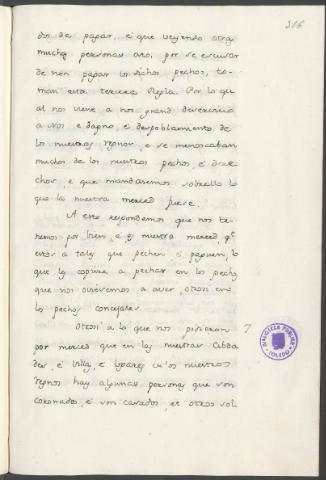 316
dos de pagar, e que veyendo otras
muchas personas esto, por se escusar
de non pagar los dichos pechos, to-
man esta tercera Regla. Por lo qu
al nos viene a nos grand deservicio
a Nos e dapno, e despoblamiento de
los nuestros regnos, e se menoscaban
muchos de los nuestros pechos e dere-
chos, e que mandasemos sobrello lo
que la nuestra merced fuere.
A esto respondemos que nos te-
nemos por bien, e es nuestra merced, qe
estos a tales que pechen e paguen, lo
que les copiere a pechar en los pechos
que nos ovieremos a aver, otrosi en
los pechos concejales.
Otrosi a lo que nos pidieron 7
por merced que en las nuestras Cibda
des, e Villas, e logares en los nuestros
regnos hay algunas personas que son
coronados, e son casados, et otros sol
BIBLIOTECA PUBLICA
TOLEDO